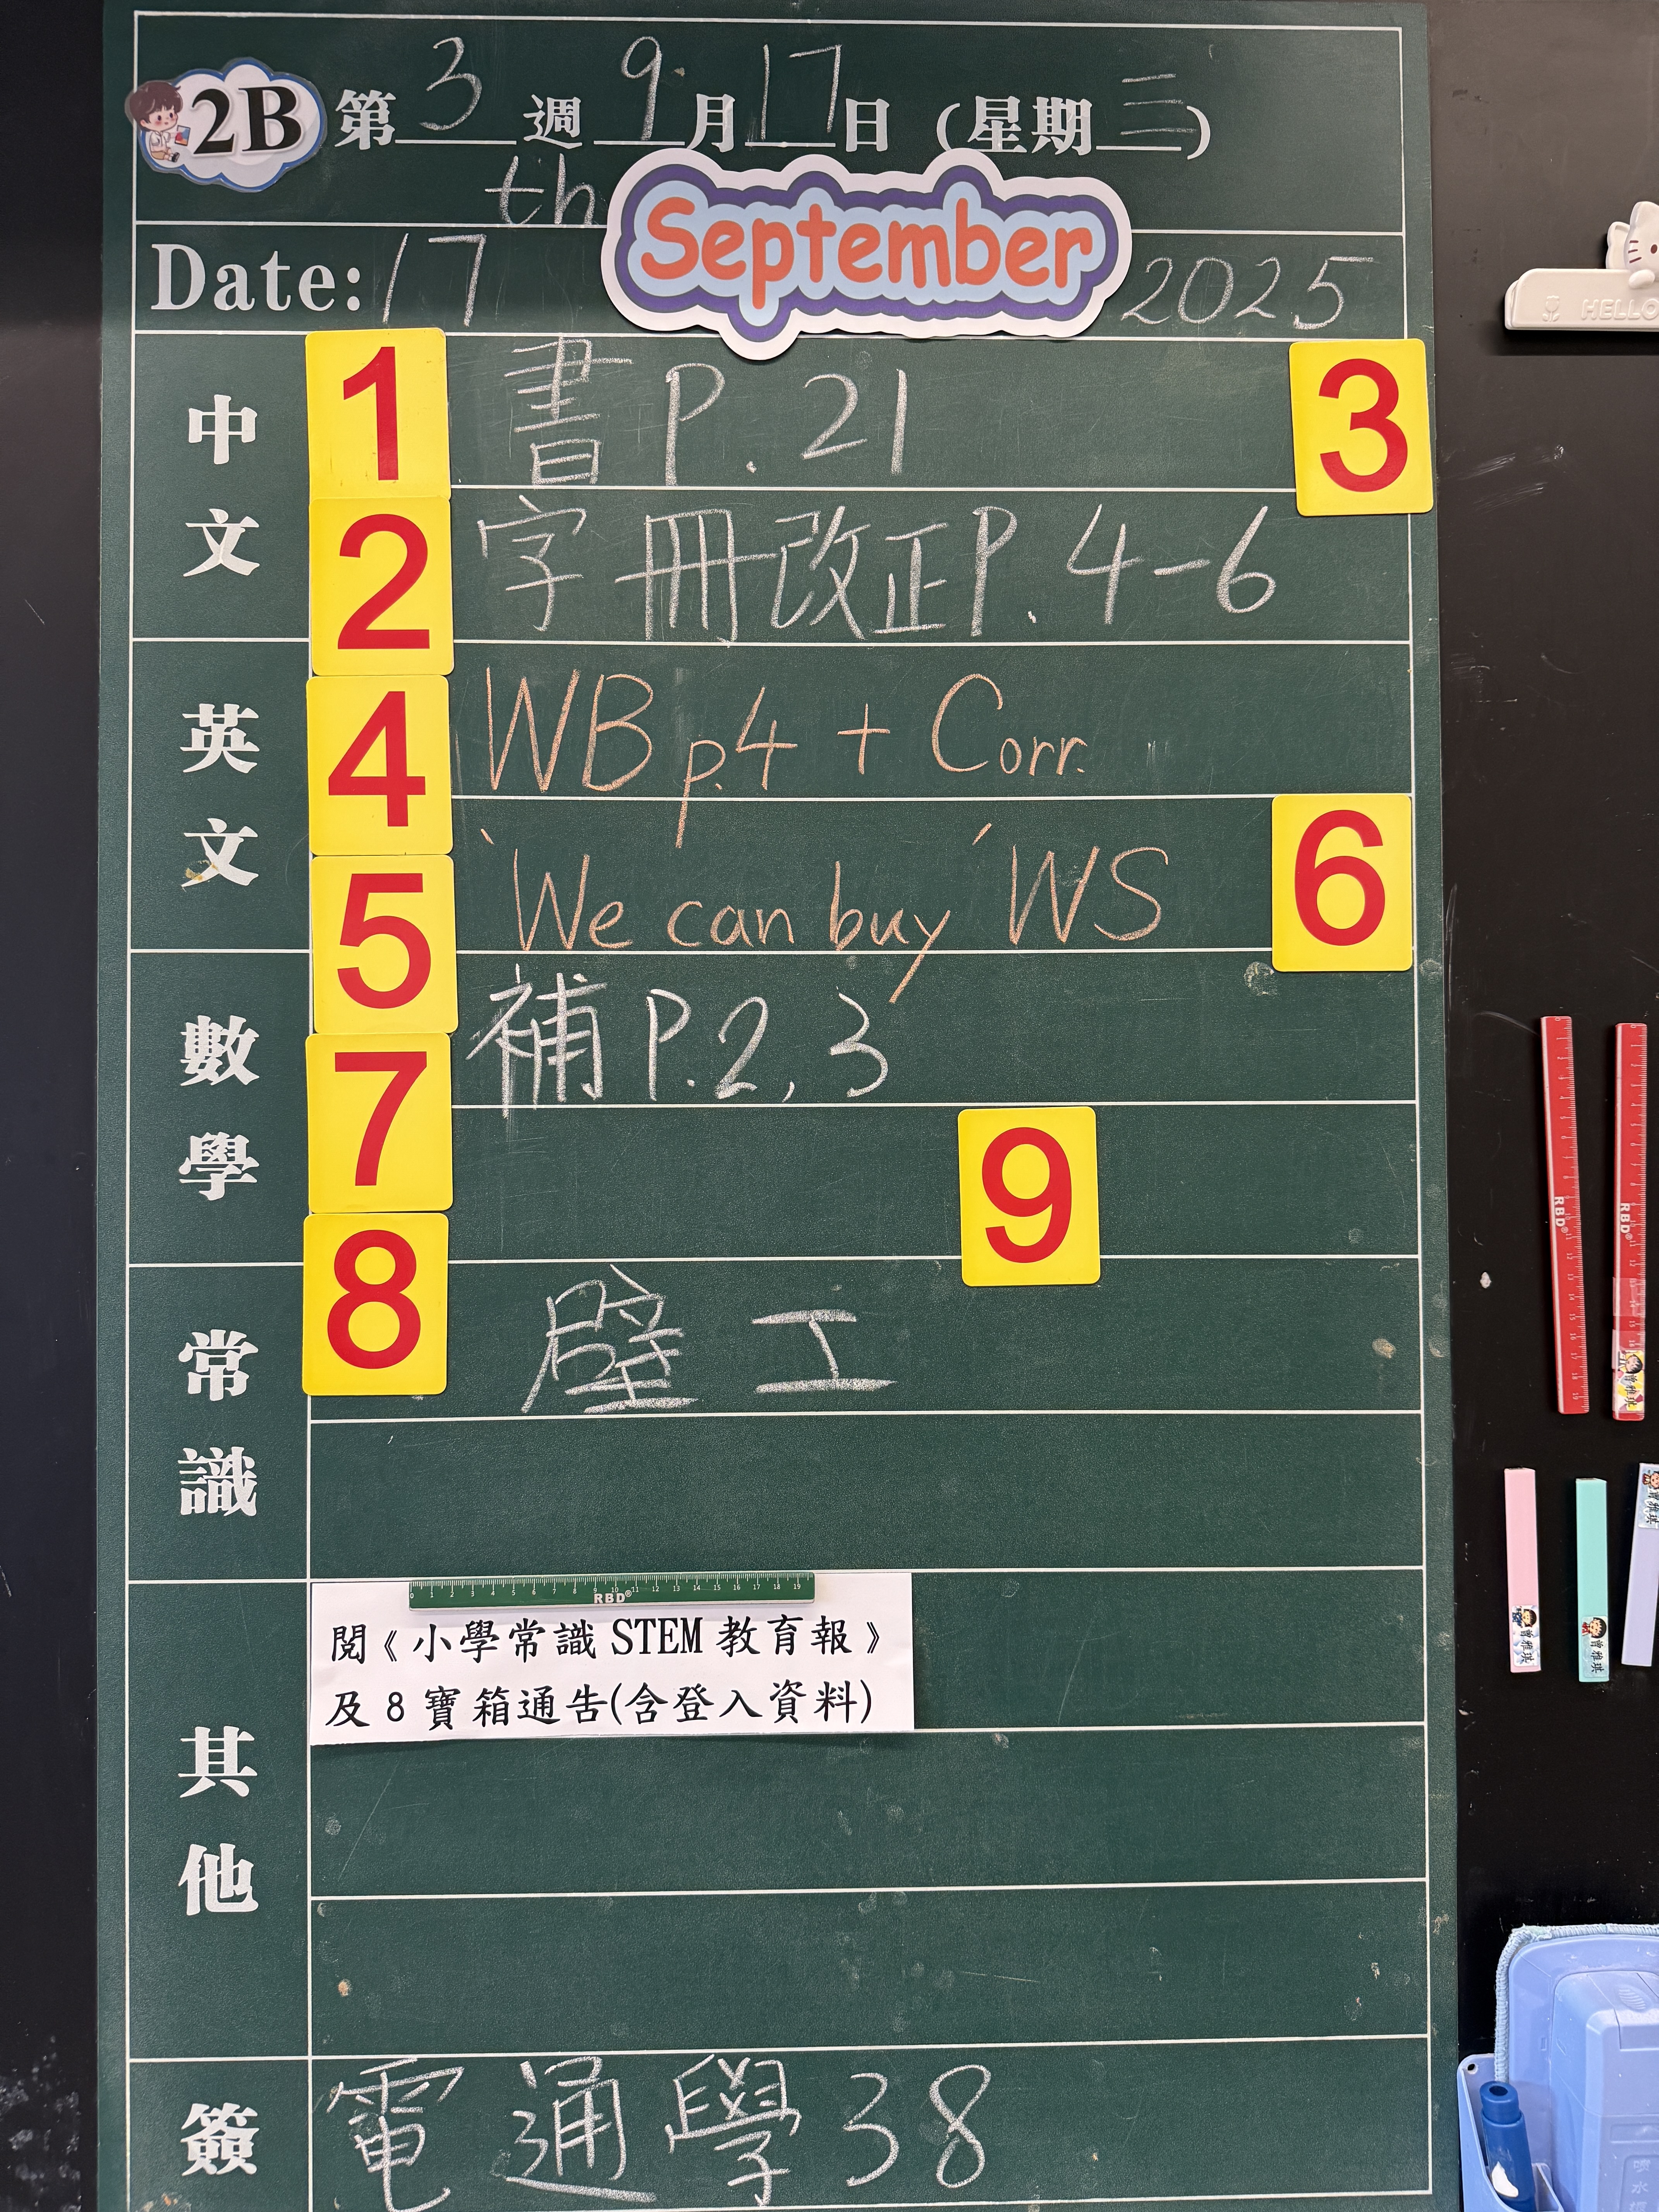 2B 第3週 9月17日 (星期三)
Date: 17th September 2025
中文
1 書 P.21 3
2 字冊改正P.4-6
英文
4 WB p.4 + Corr.
5 'We can buy' WS 6
數學
7 補 P.2, 3
9
常識
8 壁工
其他
閱《小學常識 STEM 教育報》
及 8 寶箱通告(含登入資料)
簽
電通學38
HELLO
RBD
RBD
RBD
曾雅琪
曾雅琪
曾雅琪